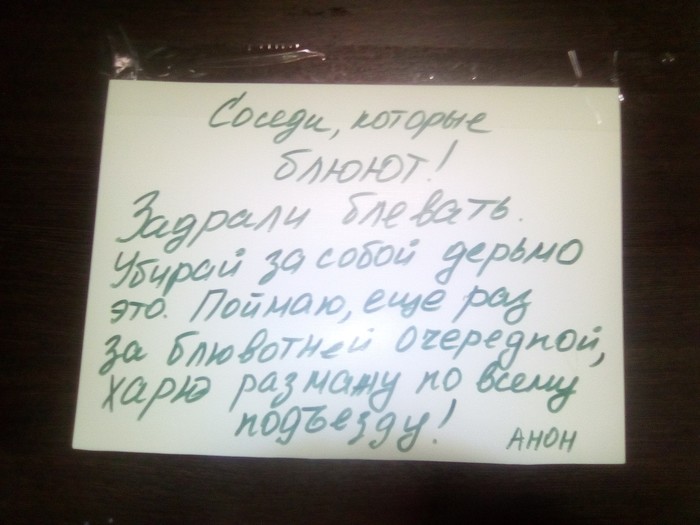 Соседи, которые
блюют!
Задрали блевать.
Убирай за собой дерьмо
это. Поймаю, еще раз
за блювотней очередной,
харю размажу по всему
подъезду!
АНОН